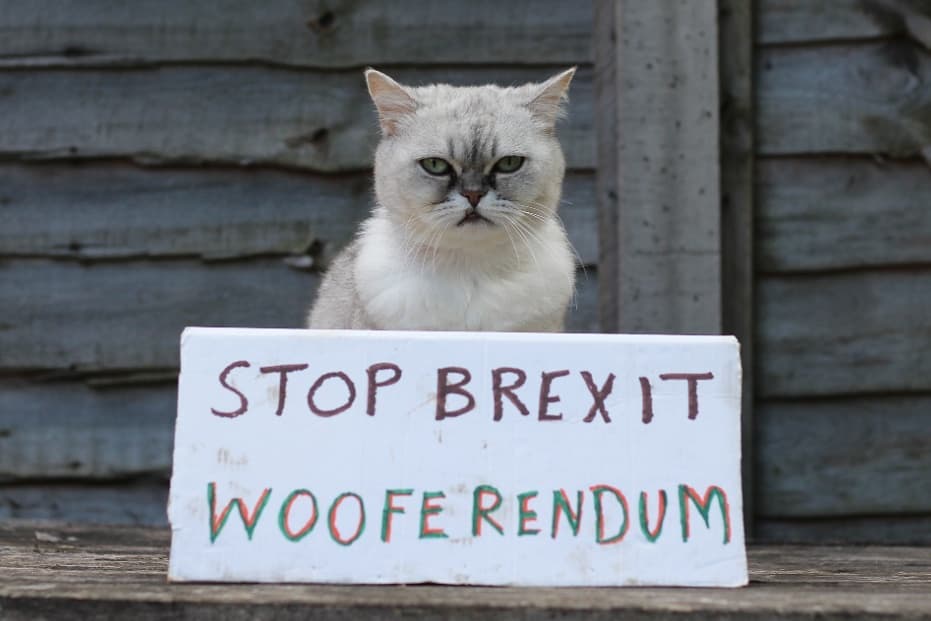 STOP BREXIT
WOOFERENDUM